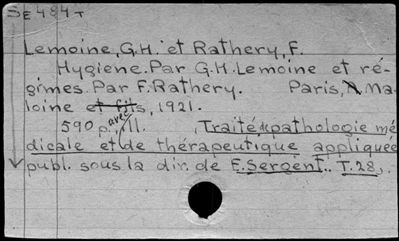 SE 484T
Lemoine, G.H. et Rathery, F.
Hygiene. Par G.H. Lemoine et ré-
gimes. Par F. Rathery. Paris, A. Ma-
loine et fils, 1921.
590 p., avec ill. Traité de pathologie mé
dicale et de thérapeutique appliquée
publ. sous la dir. de E. Sergent.. T. 28.